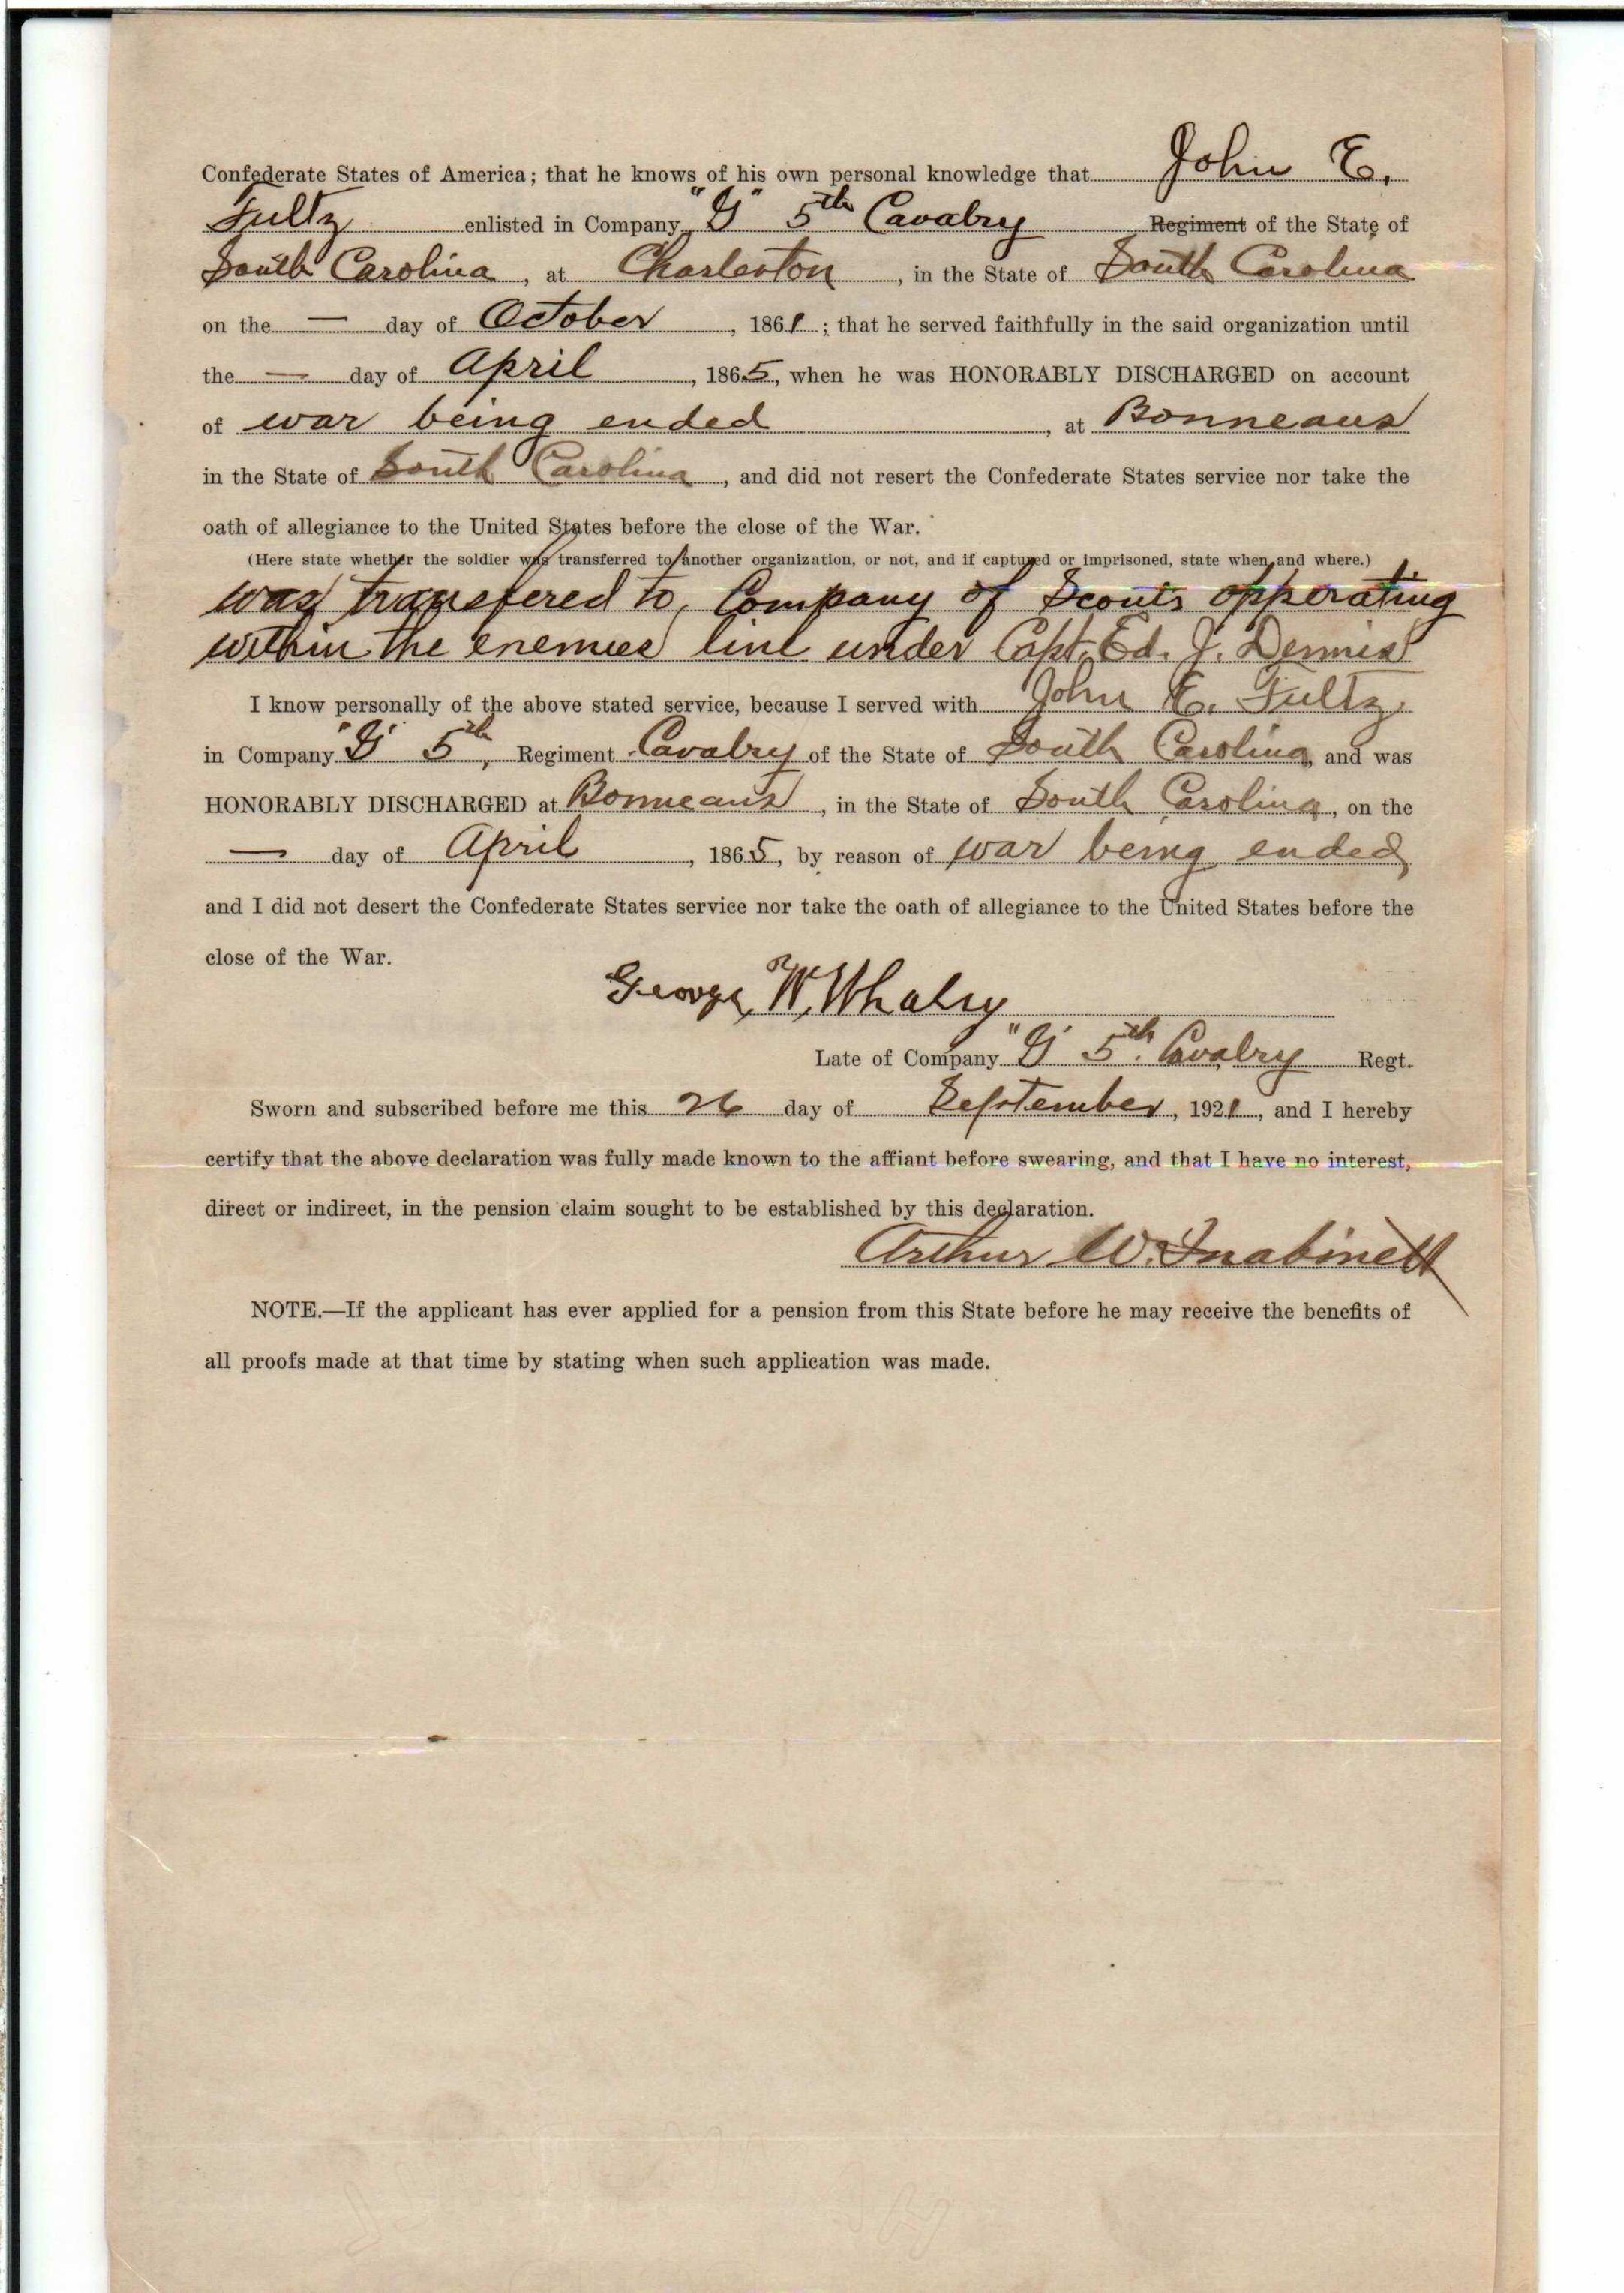 Confederate States of America; that he knows of his own personal knowledge that John E.
Fultz enlisted in Company "G" 5th Cavalry Regiment of the State of
South Carolina, at Charleston, in the State of South Carolina
on the — day of October, 1861; that he served faithfully in the said organization until
the — day of April, 1865, when he was HONORABLY DISCHARGED on account
of war being ended, at Bonneaus
in the State of South Carolina, and did not resert the Confederate States service nor take the
oath of allegiance to the United States before the close of the War.
(Here state whether the soldier was transferred to another organization, or not, and if captured or imprisoned, state when and where.)
was transfered to Company of Scouts opperating
within the enemies line under Capt. Ed. J. Dennis
I know personally of the above stated service, because I served with John E. Fultz
in Company "G" 5th, Regiment Cavalry of the State of South Carolina, and was
HONORABLY DISCHARGED at Bonneaus, in the State of South Carolina, on the
— day of April, 1865, by reason of war being ended,
and I did not desert the Confederate States service nor take the oath of allegiance to the United States before the
close of the War.
George W. Whaley
Late of Company "G" 5th. Cavalry Regt.
Sworn and subscribed before me this 26 day of September, 1921, and I hereby
certify that the above declaration was fully made known to the affiant before swearing, and that I have no interest,
direct or indirect, in the pension claim sought to be established by this declaration.
Arthur W. Inabinett
NOTE.—If the applicant has ever applied for a pension from this State before he may receive the benefits of
all proofs made at that time by stating when such application was made.